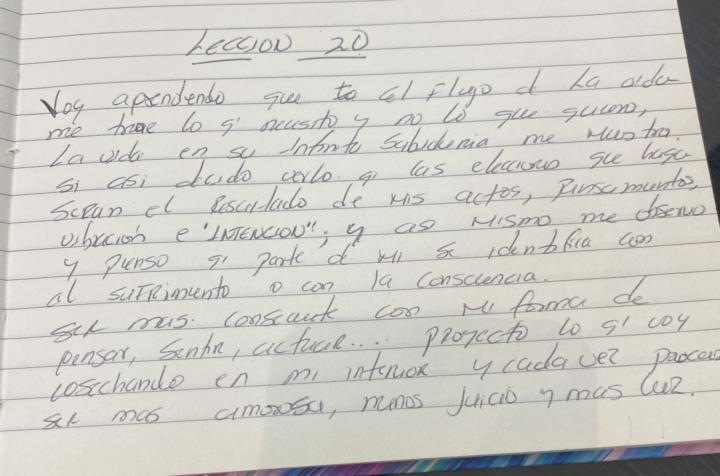 LECCION 20
Voy aprendendo que el Flujo d La vida
me trae lo q' necesito y no lo que quiero,
La vida en su Infinita Sabiduria me Muestra.
Si asi decido verlo. q' las elecciones que haga
Seran el Resultado de Mis actos, Pensamientos,
vibración e "INTENCION"; y asi Mismo me observo
y pienso q' parte d' Mi Se identifica con
al SUFRimiento o con la Consciencia.
Ser mas. Consciente con Mi forma de
pensar, Sentir, actuar.... proyecto lo q' voy
cosechando en mi interior y cada vez
ser mas amorosa, menos Juicio y mas Luz.